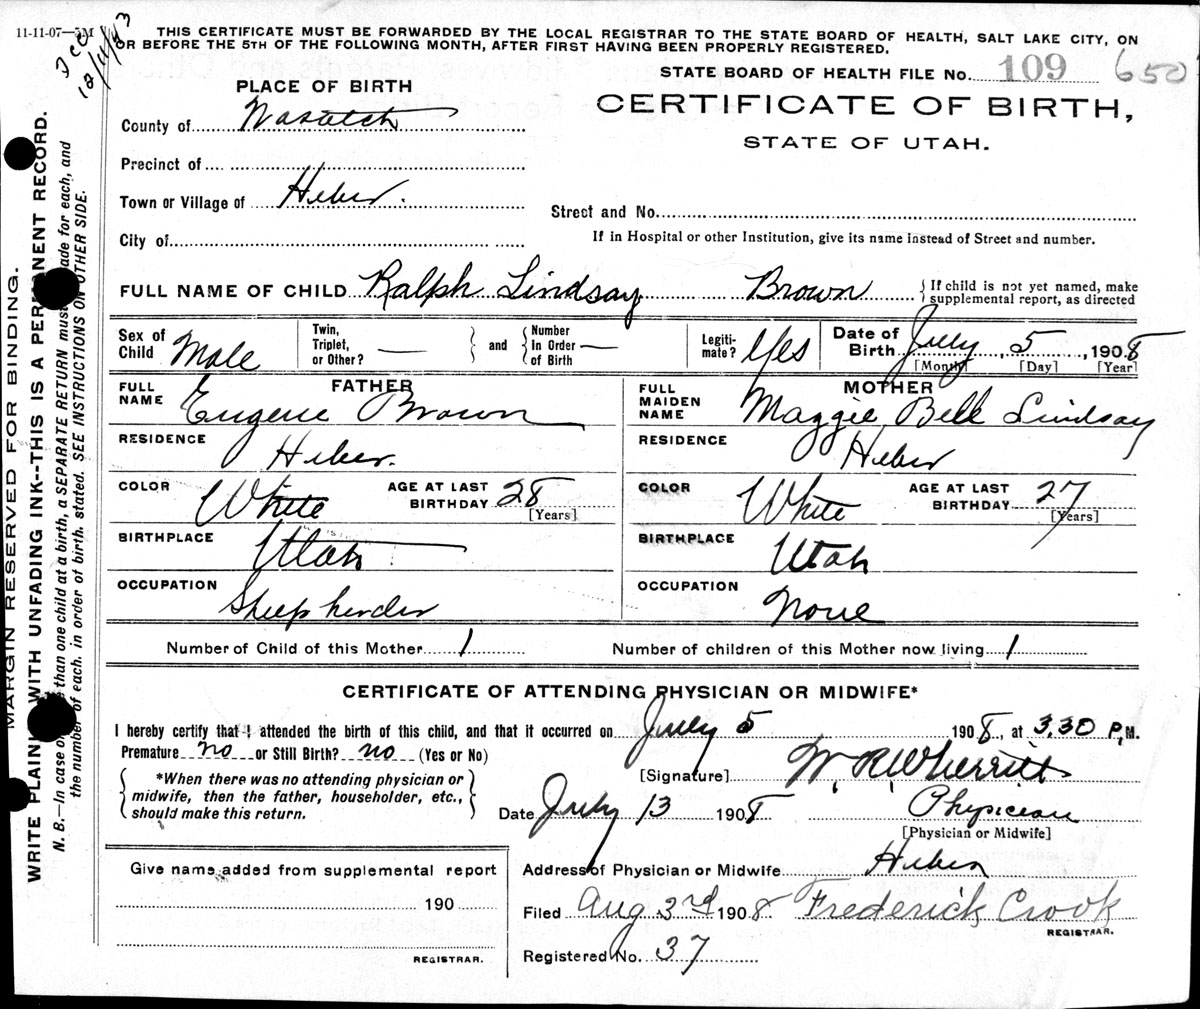 11-11-07—5M
Dec 12/14/43
THIS CERTIFICATE MUST BE FORWARDED BY THE LOCAL REGISTRAR TO THE STATE BOARD OF HEALTH, SALT LAKE CITY, ON
OR BEFORE THE 5TH OF THE FOLLOWING MONTH, AFTER FIRST HAVING BEEN PROPERLY REGISTERED.
STATE BOARD OF HEALTH FILE No. 109 650
PLACE OF BIRTH
CERTIFICATE OF BIRTH,
STATE OF UTAH.
County of Wasatch
Precinct of
Town or Village of Heber.
Street and No.
City of
If in Hospital or other Institution, give its name instead of Street and number.
FULL NAME OF CHILD Ralph Lindsay Brown { If child is not yet named, make supplemental report, as directed
Sex of Child Male
Twin, Triplet, or Other? — } and { Number In Order of Birth —
Legiti-mate? Yes
Date of Birth July 5, 1908
[Month] [Day] [Year]
FATHER
FULL NAME Eugene Brown
MOTHER
FULL MAIDEN NAME Maggie Bell Lindsay
RESIDENCE Heber.
RESIDENCE Heber
COLOR White AGE AT LAST BIRTHDAY 28 [Years]
COLOR White AGE AT LAST BIRTHDAY 27 [Years]
BIRTHPLACE Utah
BIRTHPLACE Utah
OCCUPATION Sheepherder
OCCUPATION None
Number of Child of this Mother 1
Number of children of this Mother now living 1
CERTIFICATE OF ATTENDING PHYSICIAN OR MIDWIFE*
I hereby certify that I attended the birth of this child, and that it occurred on July 5 1908, at 3.30 P.M.
Premature no or Still Birth? no (Yes or No)
*When there was no attending physician or
midwife, then the father, householder, etc.,
should make this return.
[Signature] W. R. Wherritt
Date July 13 1908 Physician
[Physician or Midwife]
Give name added from supplemental report
190
REGISTRAR.
Address of Physician or Midwife Heber
Filed Aug 3rd 1908 Frederick Crook
REGISTRAR.
Registered No. 37
MARGIN RESERVED FOR BINDING.
WRITE PLAINLY WITH UNFADING INK--THIS IS A PERMANENT RECORD.
N. B.—In case of than one child at a birth, a SEPARATE RETURN must made for each, and
the number of each, in order of birth, stated. SEE INSTRUCTIONS ON OTHER SIDE.